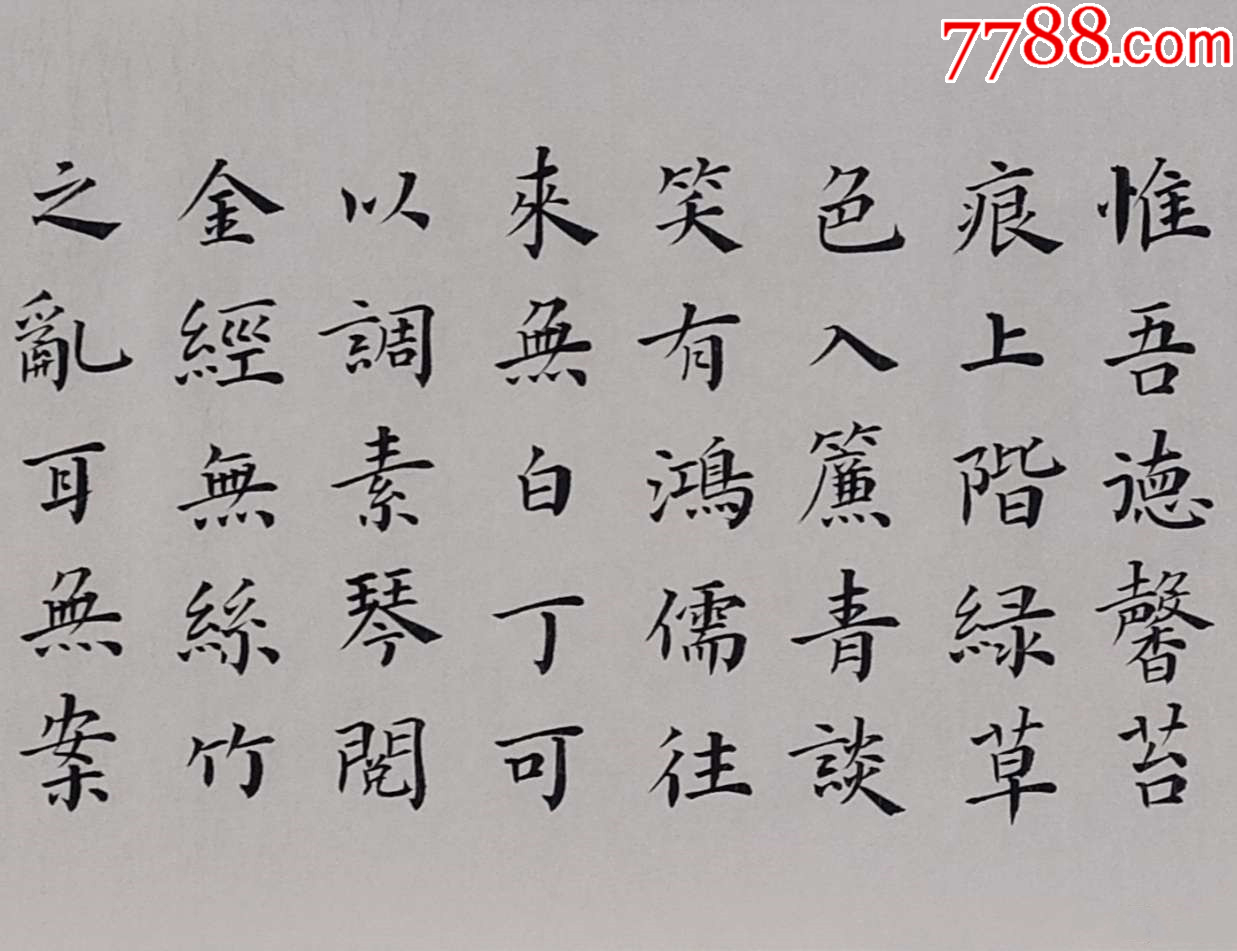 7788.com
惟吾德馨苔
痕上階緑草
色入簾青談
笑有鴻儒往
來無白丁可
以調素琴閱
金經無絲竹
之亂耳無案